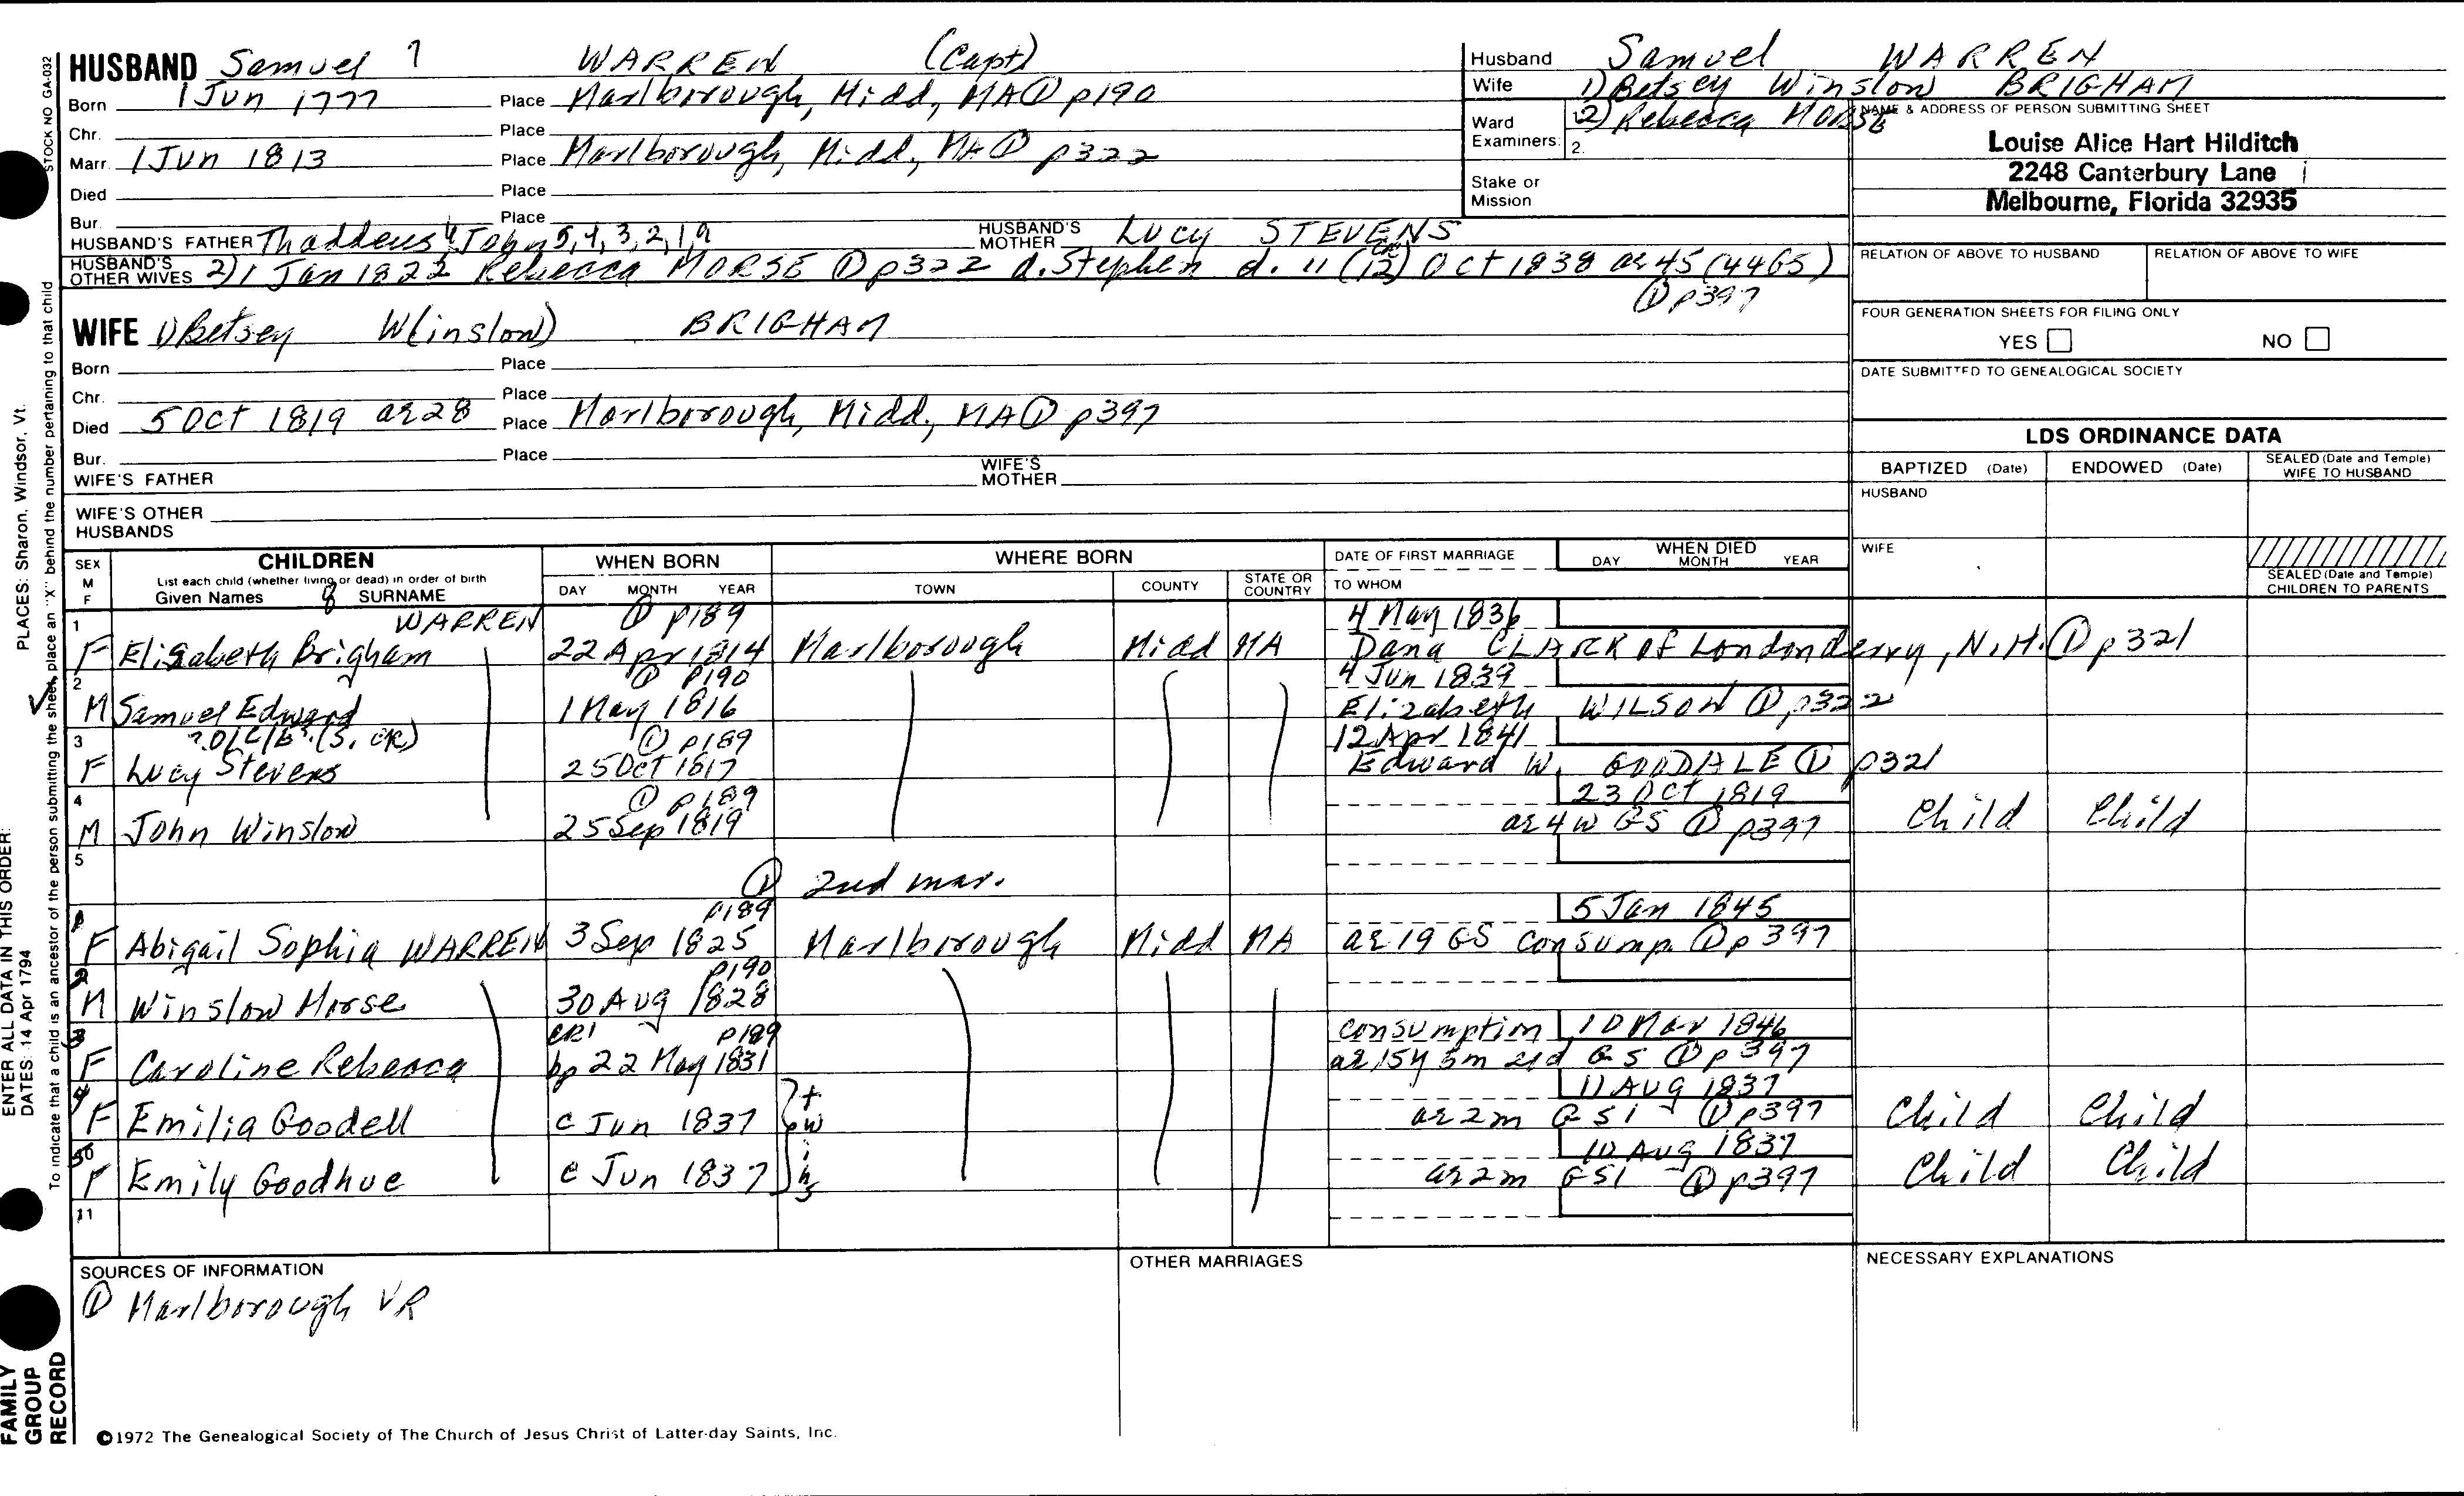 HUSBAND Samuel 7 WARREN (Capt)
Born 1 Jun 1777 Place Marlborough, Midd, MA ① p190
Chr. Place
Marr. 1 Jun 1813 Place Marlborough, Midd, MA ① p322
Died Place
Bur. Place
HUSBAND'S FATHER Thaddeus 6, John 5, 4, 3, 2, 1, a HUSBAND'S MOTHER Lucy STEVENS
HUSBAND'S OTHER WIVES 2) 1 Jan 1822 Rebecca MORSE ① p322 d. Stephen d. 11 (12 CR1) Oct 1838 ae 45 (44 GS)
① p397
Husband Samuel WARREN
Wife 1) Betsey Winslow BRIGHAM
2) Rebecca MORSE
Ward Examiners: 1. 2.
Stake or Mission
NAME & ADDRESS OF PERSON SUBMITTING SHEET
Louise Alice Hart Hilditch
2248 Canterbury Lane
Melbourne, Florida 32935
RELATION OF ABOVE TO HUSBAND RELATION OF ABOVE TO WIFE
FOUR GENERATION SHEETS FOR FILING ONLY
YES NO
DATE SUBMITTED TO GENEALOGICAL SOCIETY
WIFE 1) Betsey W(inslow) BRIGHAM
Born Place
Chr. Place
Died 5 Oct 1819 ae 28 Place Marlborough, Midd., MA ① p397
Bur. Place
WIFE'S FATHER WIFE'S MOTHER
WIFE'S OTHER HUSBANDS
LDS ORDINANCE DATA
BAPTIZED (Date) ENDOWED (Date) SEALED (Date and Temple) WIFE TO HUSBAND
HUSBAND
WIFE
SEALED (Date and Temple) CHILDREN TO PARENTS
SEX M F
CHILDREN
List each child (whether living or dead) in order of birth
Given Names 8 SURNAME
WHEN BORN DAY MONTH YEAR
WHERE BORN TOWN COUNTY STATE OR COUNTRY
DATE OF FIRST MARRIAGE TO WHOM
WHEN DIED DAY MONTH YEAR
1 WARREN ① p189 4 May 1836
F Elizabeth Brigham 22 Apr 1814 Marlborough Midd MA Dana CLARK of Londonderry, N.H. ① p321
2 ① p190 4 Jun 1839
M Samuel Edward 1 May 1816 Elizabeth WILSON ① p322
3 (S. CR) ① p189 12 Apr 1841
F Lucy Stevens 25 Oct 1817 Edward W. GOODALE ① p321
4 ① p189 23 Oct 1819
M John Winslow 25 Sep 1819 ae 4w GS ① p397 Child Child
5
① 2nd mar.
1 p189 5 Jan 1845
F Abigail Sophia WARREN 3 Sep 1825 Marlborough Midd MA ae 19 GS consump. ① p397
2 p190
M Winslow Morse 30 Aug 1828
3 CR1 p189 consumption 10 Mar 1846
F Caroline Rebecca bp 22 May 1831 ae 15y 5m 21d GS ① p397
4 11 Aug 1837
F Emilia Goodell c Jun 1837 twins ae 2m GS1 ① p397 Child Child
5 10 Aug 1837
F Emily Goodhue c Jun 1837 ae 2m GS1 ① p397 Child Child
11
SOURCES OF INFORMATION
① Marlborough VR
OTHER MARRIAGES
NECESSARY EXPLANATIONS
©1972 The Genealogical Society of The Church of Jesus Christ of Latter-day Saints, Inc.
STOCK NO GA-032
To indicate that a child is an ancestor of the person submitting the sheet, place an "X" behind the number pertaining to that child
ENTER ALL DATA IN THIS ORDER:
PLACES: Sharon, Windsor, Vt.
DATES: 14 Apr 1794
FAMILY GROUP RECORD